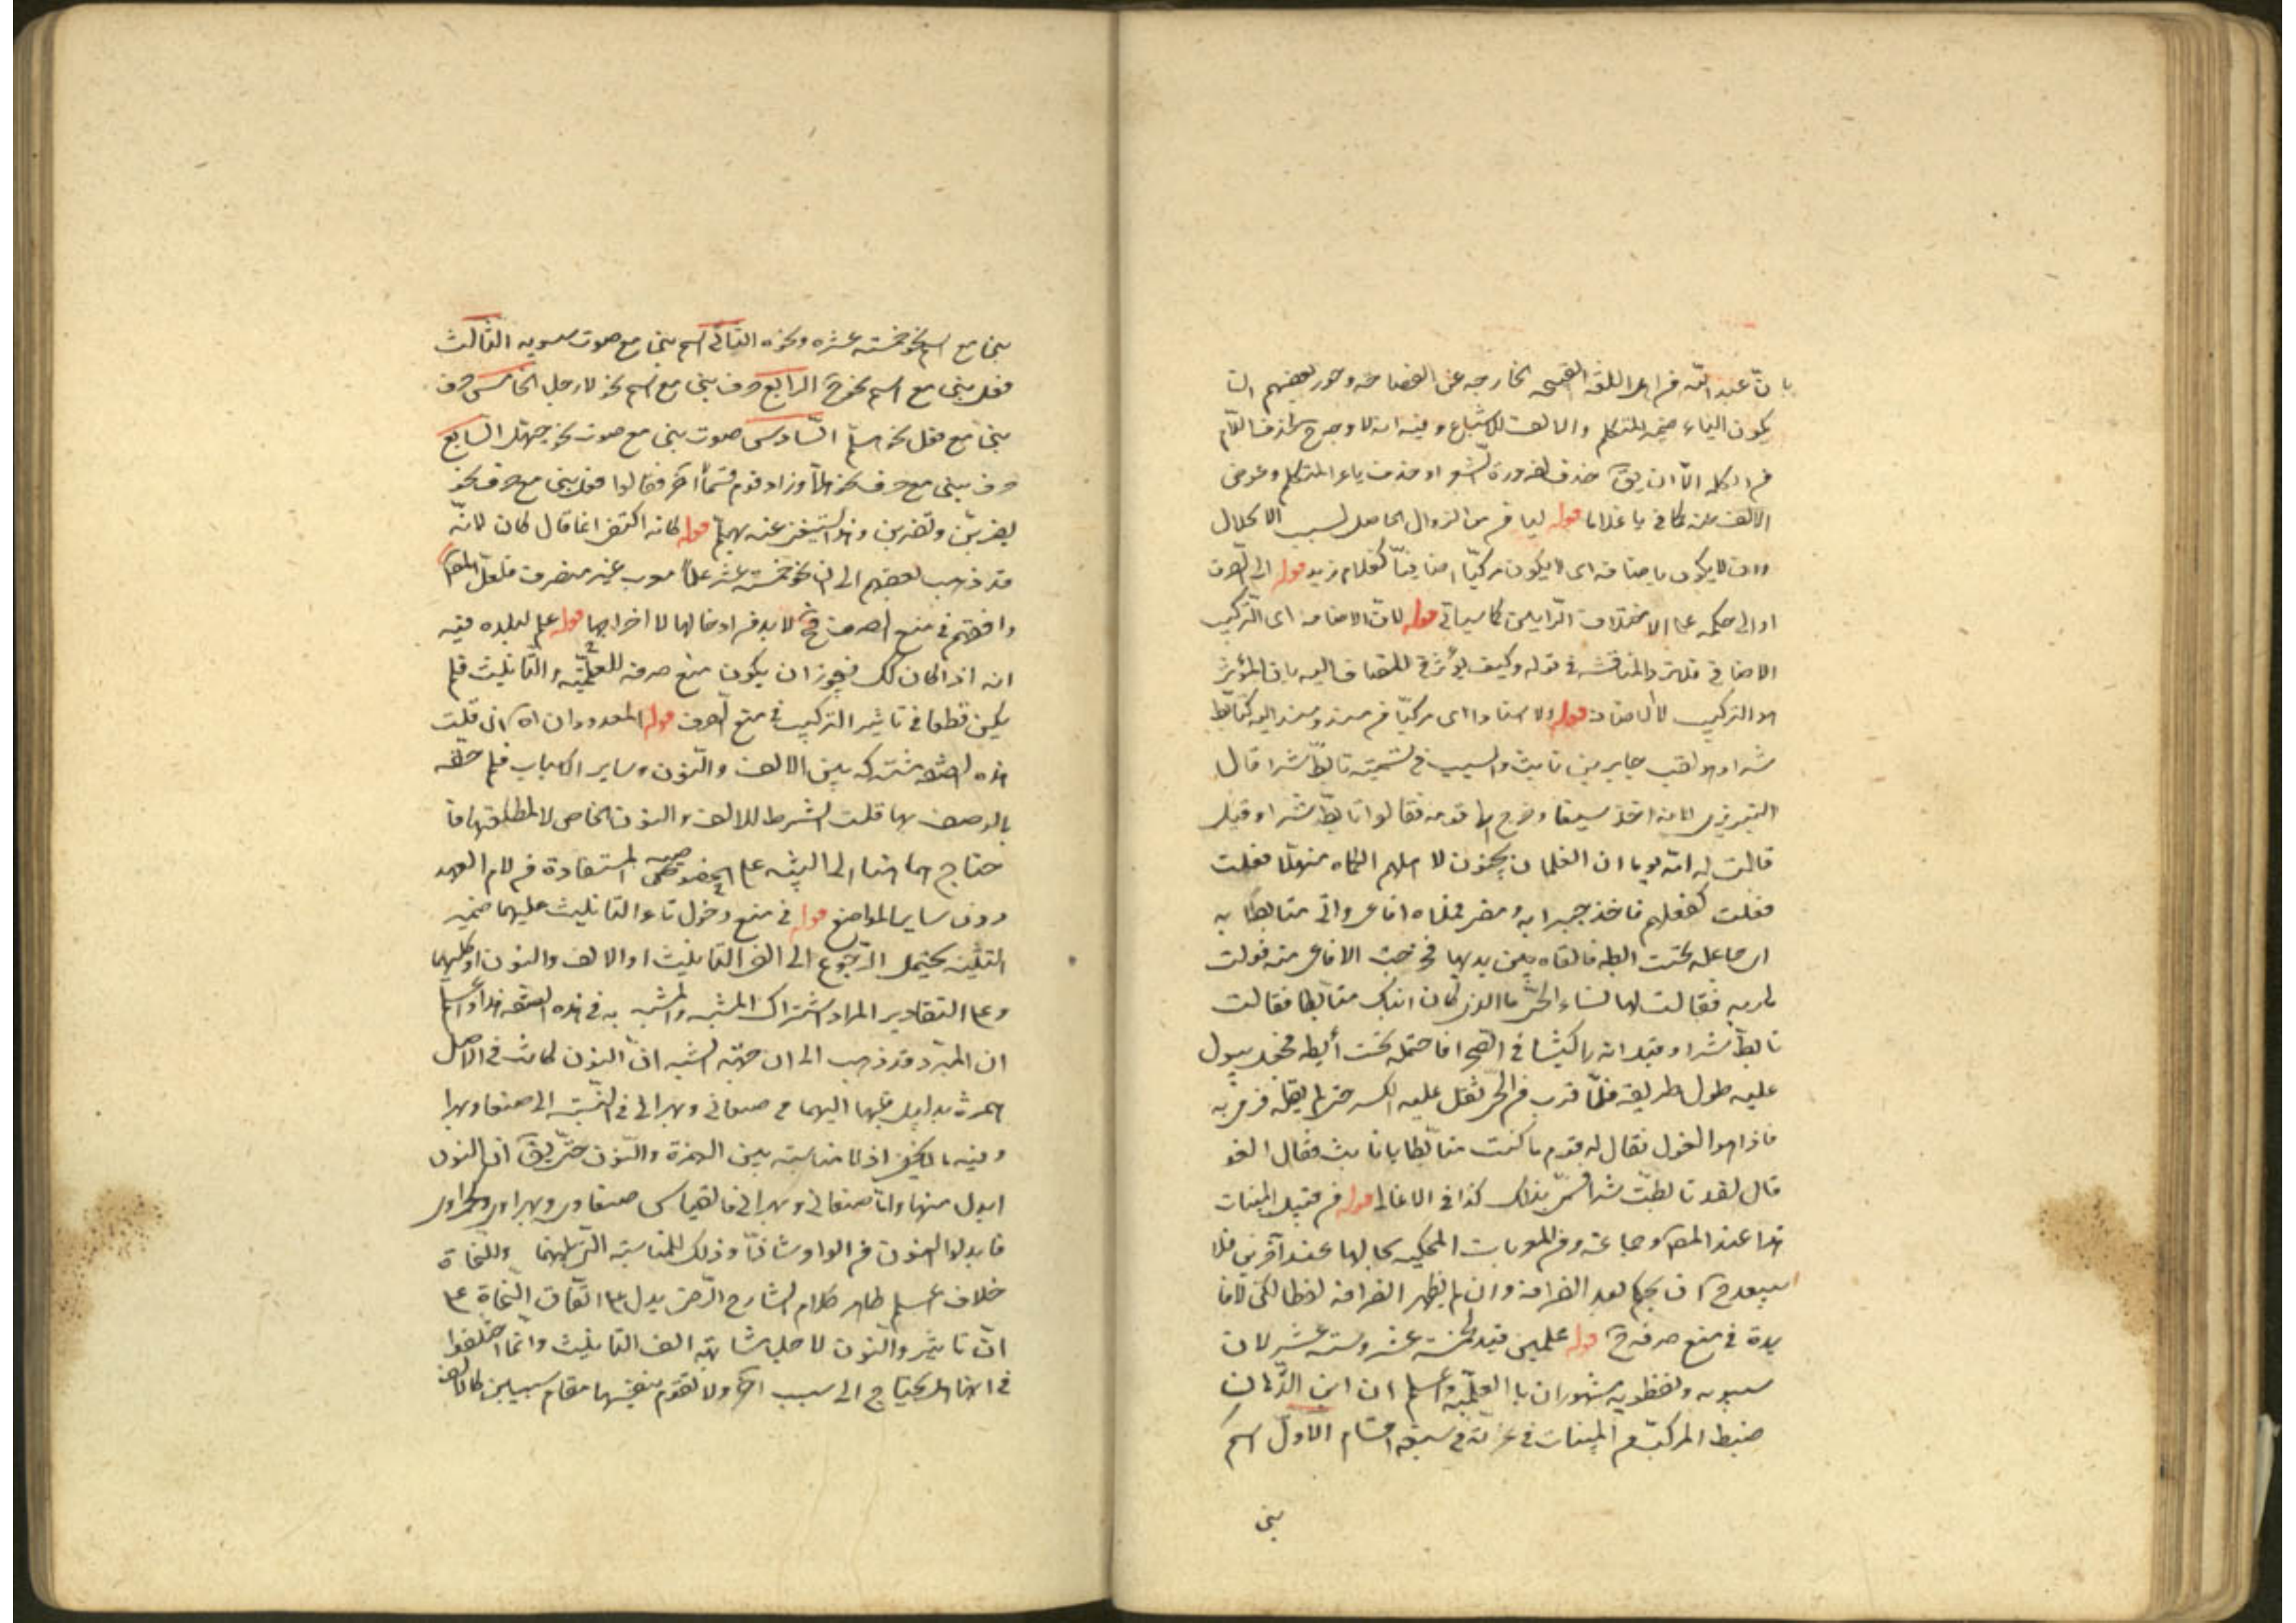 بان عند الله من اهل اللغة الفصحى الخارجه عن الفصاحه وجوز بعضهم ان
يكون الياء ضمير المتكلم والالف للاشباع وفيه انه لا وجه ح لحذف اللام
من الكلمه الا ان يق حذف لضرورة الشعر او حذف ياء المتكلم وعوض
الالف عنه كما في يا غلاما قوله ليا من من الزوال الحاصل لسبب الانحلال
وان لا يكون باضافه اى لا يكون مركبا اضافيا كغلام زيد قوله الى الصرف
او الى حكمه على الاختلاف الرايين كما سياتى قوله لان الاضافه اى التركيب
الاضافى قلت والمناقشه فى قوله وكيف يؤثر فى المضاف اليه بان المؤثر
هو التركيب لا الاضافه قوله ولا اسنادا اى مركبا من مسند ومسند اليه كتابط
شرا وهو لقب جابر بن ثابت والسبب فى تسميته تابط شرا قال
التبريزى لانه اخذ سيفا وخرج الى قومه فقالوا تابط شرا وقيل
قالت له امه يوما ان الغلمان يجنون لاهلهم الكماه فهلا فعلت
فعلت كفعلهم فاخذ جرابه ومضى فملاه افاعى واتى متابطا به
اى جاعله تحت ابطه فالقاه بين يديها فخرجت الافاعى منه فولت
هاربه فقالت لها نساء الحى ما الذى كان ابنك متابطا فقالت
تابط شرا وقيل انه راى كبشا فى الصحرا فاحتمله تحت ابطه فجعل يبول
عليه طول طريقه فلما قرب من الحى ثقل عليه الكبش حتى لم يقله فرمى به
فاذا هو الغول فقال له قومه ما كنت متابطا يا ثابت فقال الغو
قال لقد تابطت شرا فسمى بذلك كذا فى الاغانى قوله من قبيل المبنيات
هذا عند المص وجماعة ومن المعربات المحكيه بحالها عند آخرين فلا
يبعد ح ان يحكم بعدم الصرافه وان لم يظهر الصرافه لفظا لكن لا فا
يدة فى منع صرفه ح قوله علمين قيد لخمسة عشر وستة عشر لان
سيبويه ونفطويه مشهوران بالعلميه واعلم ان ابن الدهان
ضبط المركب من المبنيات فى غرته فى سبعه اقسام الاول اسم
بنى
بنى مع اسم نحو خمسة عشره ونحوه الثانى اسم بنى مع صوت سيبويه الثالث
فعل بنى مع اسم نحو حبذا الرابع حرف بنى مع اسم نحو لا رجل الخامس حرف
بنى مع فعل نحو هلم السادس صوت بنى مع صوت نحو حيهل السابع
حرف بنى مع حرف نحو هلا وزاد قوم قسما آخر فقالوا فعل بنى مع حرف نحو
يضربن وتضربن وهو استغنى عنه بهلم قوله كانه اكتفى انما قال كان لانه
قد ذهب بعضهم الى ان نحو خمسة عشر علما معرب غير منصرف فلعل المص
وافقهم فى منع الصرف فح لا بد من ادخالها لا اخراجها قوله علم لبلده فيه
انه اذا كان كك فيجوز ان يكون منع صرفه للعلميه والتانيث فلم
يكن قطعا فى تاثير التركيب فى منع الصرف قوله المعدودان اه ان قلت
هذه الصفه مشتركه بين الالف والنون وساير الاسباب فلم خصه
بالوصف بها قلت الشرط للالف والنون الخاص لا لمطلقهما فا
حتاج الى التنبيه على الخصوصيه المستفادة من لام العهد
دون ساير المواضع قوله فى منع دخول تاء التانيث عليهما ضمير
التثنيه يحتمل الرجوع الى الفى التانيث او الالف والنون او كليهما
وعلى التقادير المراد اشتراك المشبه والمشبه به فى هذه الصفه هذا واعلم
ان المبرد قد ذهب الى ان جهة الشبه ان النون كانت فى الاصل
همزة بدليل قلبها اليهما فى صنعانى وبهرانى فى النسبة الى صنعا وبهرا
وفيه ما لا يخفى اذ لا مناسبة بين الهمزة والنون حتى يق ان النون
ابدل منها واما صنعانى وبهرانى فالقياس صنعاوى وبهراوى وحمراوى
فابدلوا النون من الواو شاذا وذلك للمناسبة التى بينهما وللنحاة
خلاف اعلم ظاهر كلام الشارح الرضى يدل على اتفاق النحاة على
ان تاثير والنون لاجل مشابهة الف التانيث وانما اختلفوا
فى انها هل يحتاج الى سبب آخر ولا تقوم بنفسها مقام سببين كالالف